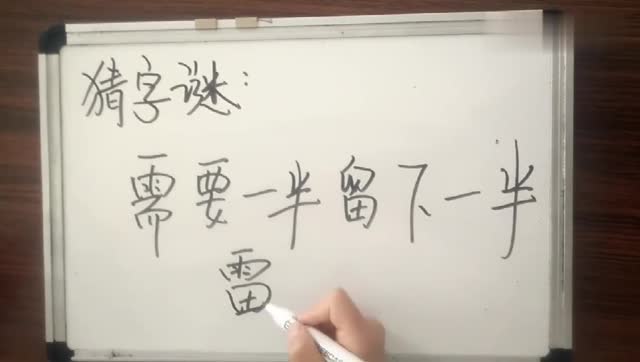 猜字谜:
需要一半留下一半
雷